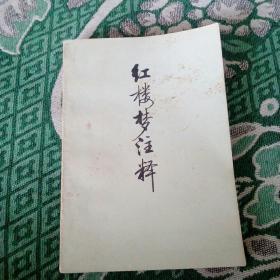 红楼梦注释